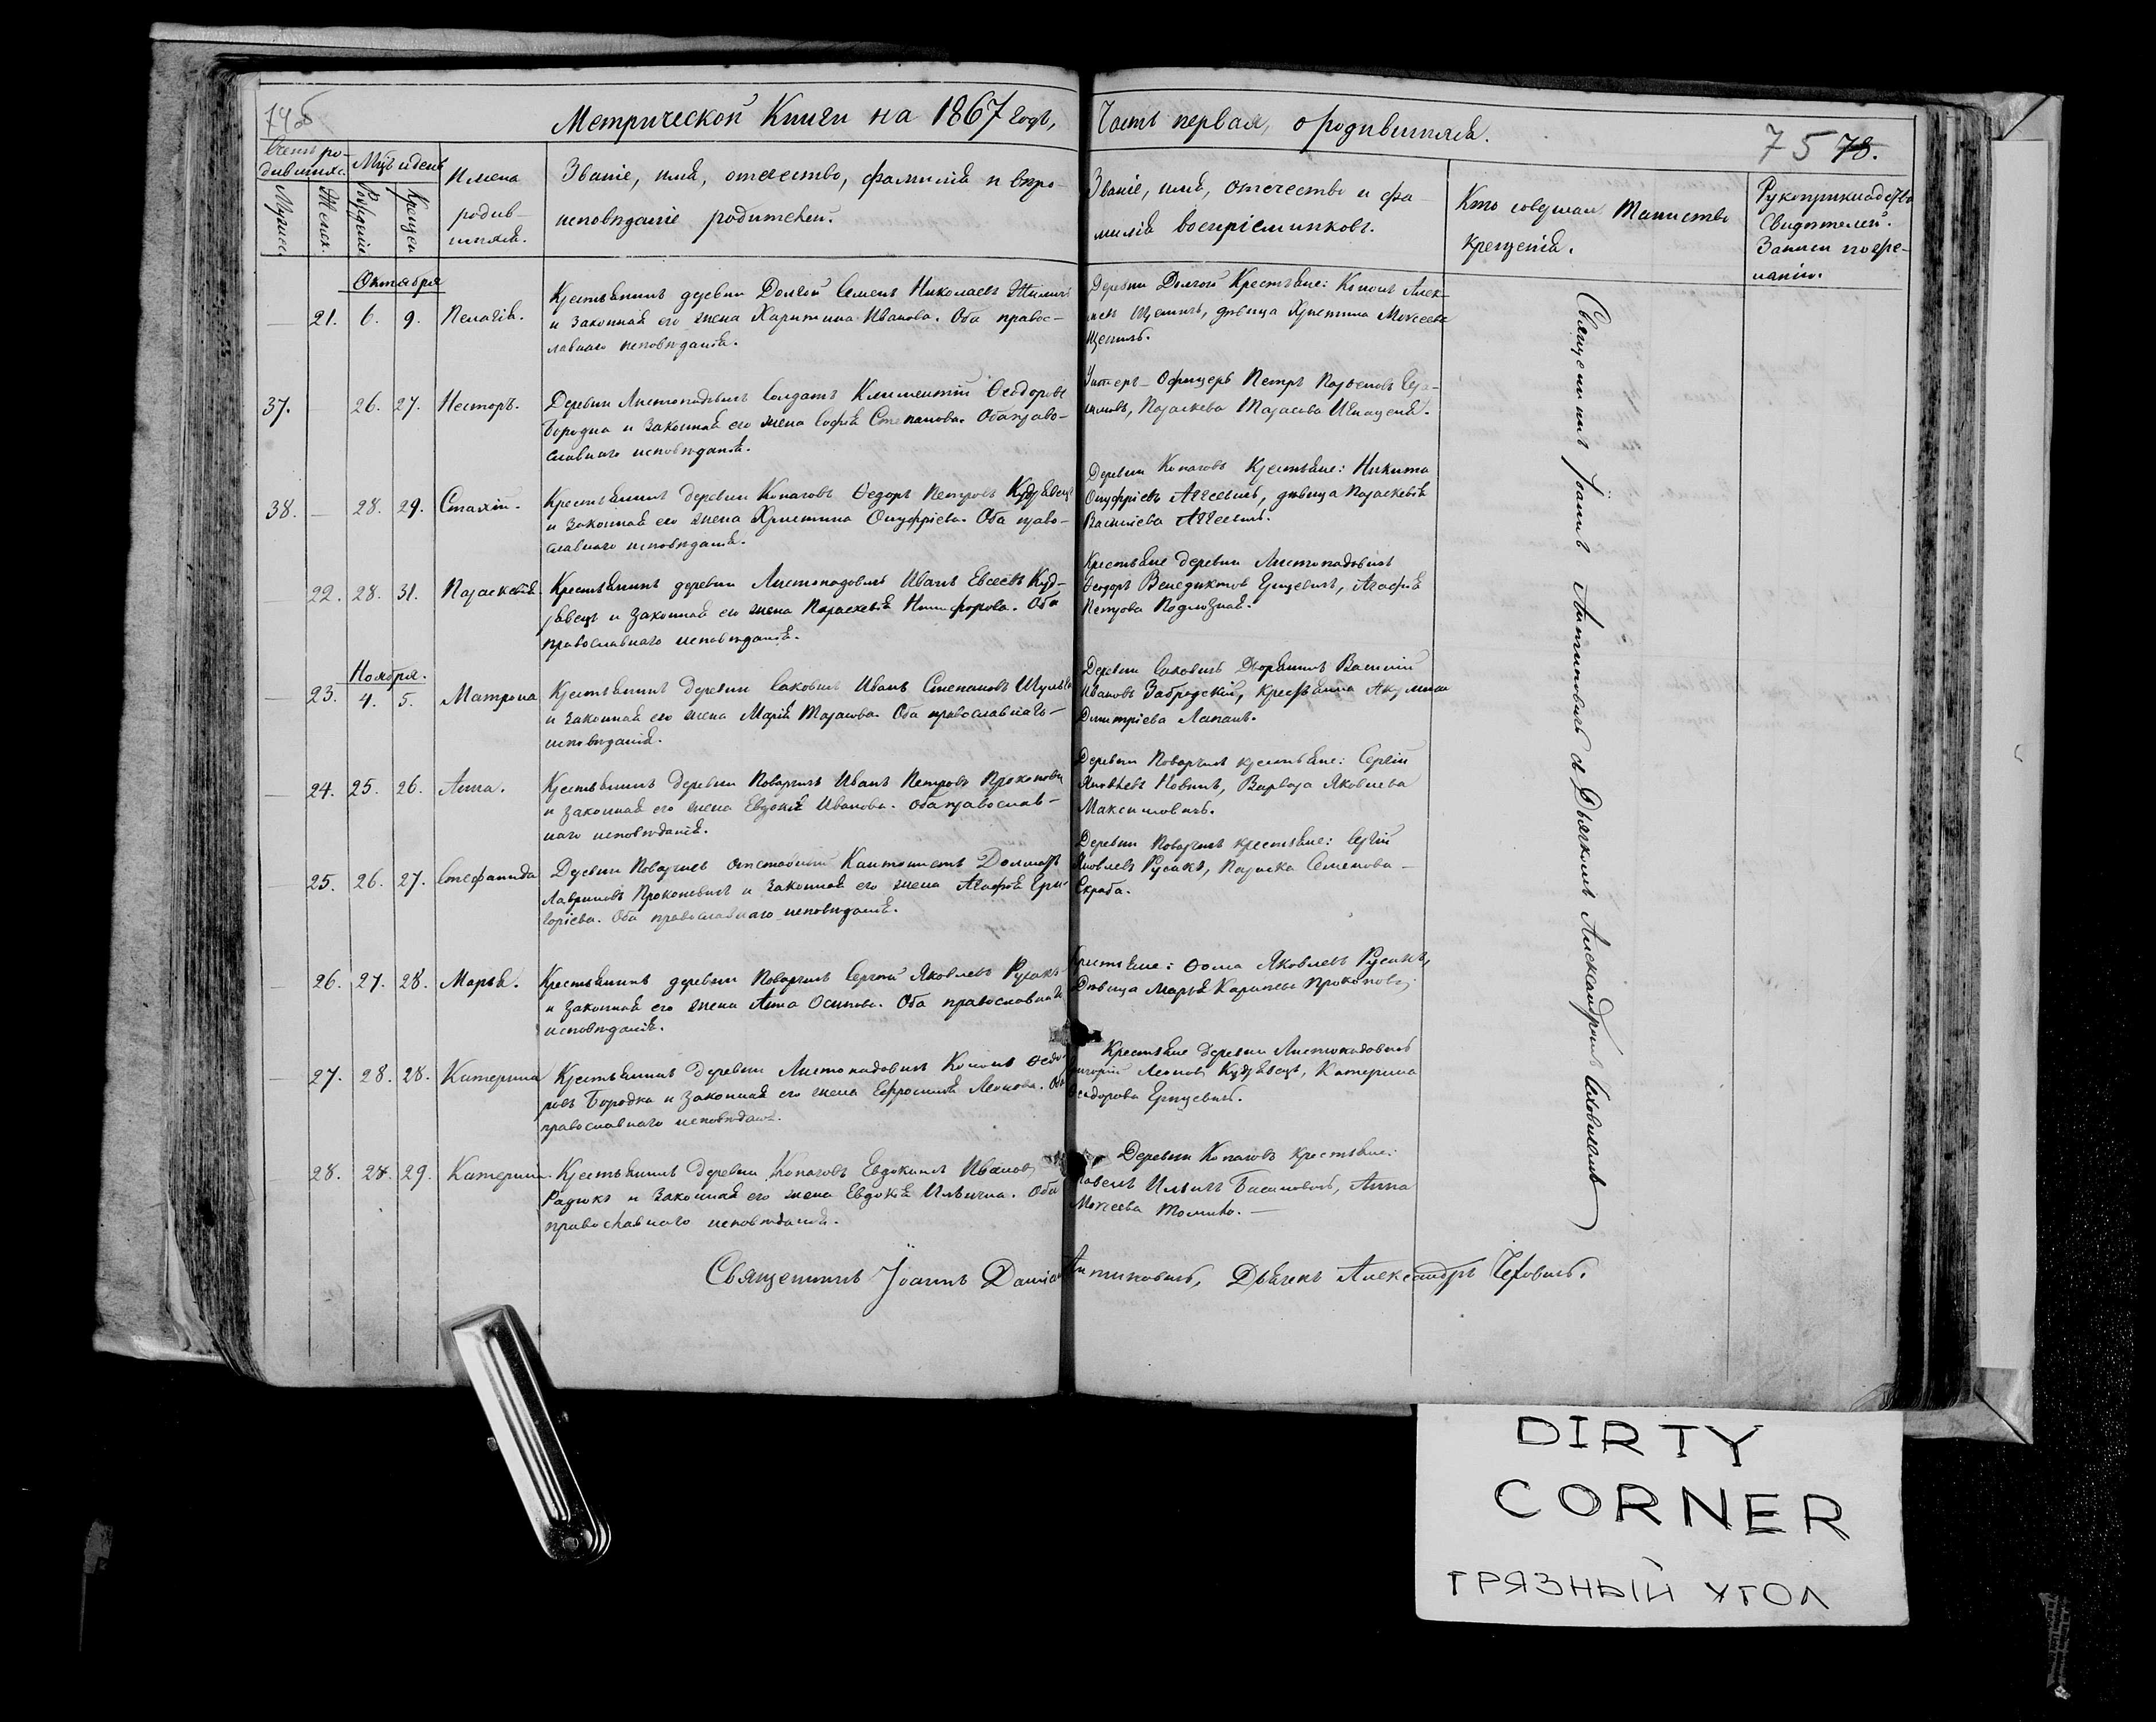 74об
Метрической Книги на 1867 годъ,
Часть первая, о родившихся.
75 78.
Счетъ ро-
дившихс.
Мужеск.
Женск.
Мѣц. и день
Рожденія
Крещен.
Имена
родив-
шихся.
Званіе, имя, отечество, фамилія и вѣро-
исповѣданіе родителей.
Званіе, имя, отечество и фа-
милія воспріемниковъ.
Кто совершал Таинство
крещенія.
Рукоприкладство
Свидѣтелей
Записи по же-
ланію.
Октября
— 21. 6. 9. Пелагія.
Крестьянинъ деревни Долгой Семенъ Николаевъ
и законная его жена Харитина Иванова. Оба правос-
лавнаго исповѣданія.
Деревни Долгой Крестьяне: Кононъ Алек-
дѣвица Христина Моисеева
37. — 26. 27. Несторъ.
Деревни Листопадовичъ Солдатъ Климентій Ѳеодоровъ
Бородка и законная его жена Софія Степанова. Оба право-
славнаго исповѣданія.
Унтеръ-Офицеръ Петръ
Параскева Тарасова
38. — 28. 29. Стахій.
Крестьянинъ деревни Копачовъ Ѳедоръ Петровъ Кудрявецъ
и законная его жена Христина Онуфріева. Оба право-
славнаго исповѣданія.
Деревни Копачовъ Крестьяне: Никита
Онуфріевъ дѣвица Параскевія
Василіева
— 22. 28. 31. Параскевія.
Крестьянинъ деревни Листопадовичъ Иванъ Евсеевъ Куд-
рявецъ и законная его жена Параскевія Никифорова. Оба
православнаго исповѣданія.
Крестьяне деревни Листопадовичъ
Ѳеодоръ Венедиктовъ Грицевичъ, Агафія
Петрова
Ноября.
— 23. 4. 5. Матрона
Крестьянинъ деревни Саковичъ Иванъ Степановъ
и законная его жена Марія Тарасова. Оба православнаго
исповѣданія.
Деревни Саковичъ Дворянинъ Василій
Ивановъ Забродскій, крестьянка Акулина
Димитріева Лапанъ.
— 24. 25. 26. Анна.
Крестьянинъ деревни Поварчицъ Иванъ Петровъ Прокопович
и законная его жена Евдокія Иванова. Оба православ-
наго исповѣданія.
Деревни Поварчицъ крестьяне: Сергій
Яковлевъ Новикъ, Варвара Яковлева
Максимовичъ.
— 25. 26. 27. Стефанида
Деревни Поварчицъ отставный Кантонистъ
Лавриновъ Прокоповичъ и законная его жена Агафія Гри-
горіева. Оба православнаго исповѣданія.
Деревни Поварчицъ крестьяне: Сергій
Яковлевъ Русакъ, Параска Семенова
Скраба.
— 26. 27. 28. Марья.
Крестьянинъ деревни Поварчицъ Сергѣй Яковлевъ Русакъ
и законная его жена Анна Осипова. Оба православнаго
исповѣданія.
Крестьяне: Ѳома Яковлевъ Русакъ,
Дѣвица Марья Карпова Прокопович
— 27. 28. 28. Катерина
Крестьянинъ деревни Листопадовичъ Кононъ Ѳедо-
ровъ Бородка и законная его жена Ефросинія Леонова. Оба
православнаго исповѣданія.
Крестьяне деревни Листопадовичъ
Григорій Леоновъ Кудрявецъ, Катерина
Ѳеодорова Грицевичъ.
— 28. 28. 29. Катерина.
Крестьянинъ деревни Копачовъ Евдокимъ Ивановъ
Радюкъ и законная его жена Евдокія Ильична. Оба
православнаго исповѣданія.
Деревни Копачовъ крестьяне:
Павелъ Ильичъ Басиловичъ, Анна
Моисеева
Священникъ Іоаннъ Антиповичъ съ Дьячкомъ Александромъ
Священникъ Іоаннъ Антиповичъ, Дьячекъ Александръ
DIRTY
CORNER
ГРЯЗНЫЙ УГОЛ